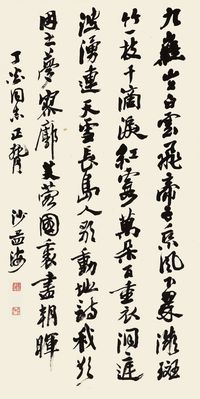 九嶷山上白雲飛帝子乘風下翠微斑
竹一枝千滴淚紅霞萬朵百重衣洞庭
波湧連天雪長島人歌動地詩我欲
因之夢寥廓芙蓉國裏盡朝暉
同志正腕
沙孟海